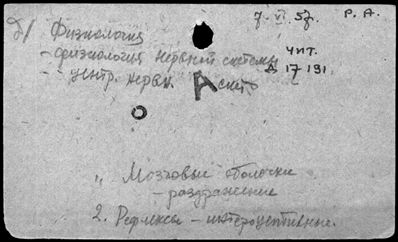 7. VI. 57. Р. А.
д/ Физиология
- физиология нервной системы
чит.
- " центр. нервн. А сист.
Д 17 191
" Мозговые оболочки
- раздражение
2. Рефлексы - интероцептивные.